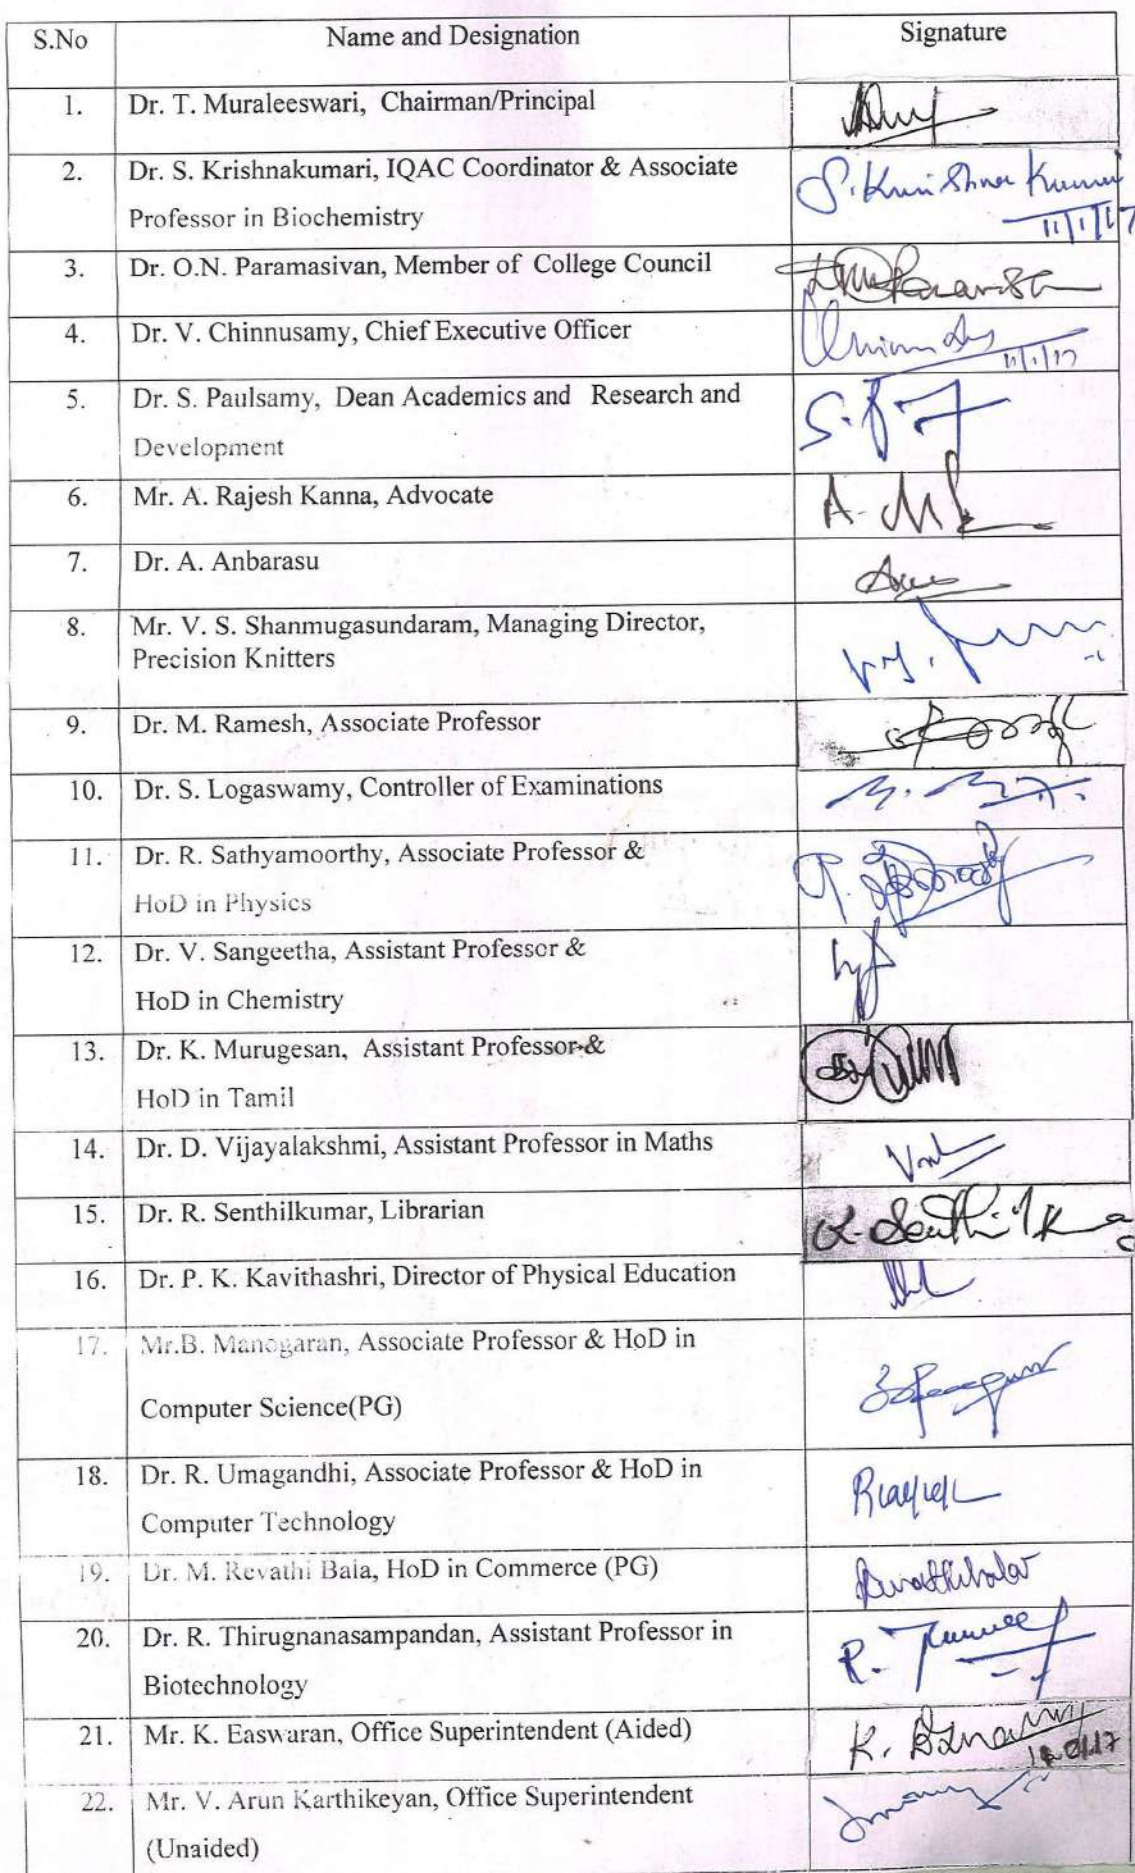 S.No Name and Designation Signature
1. Dr. T. Muraleeswari, Chairman/Principal
2. Dr. S. Krishnakumari, IQAC Coordinator & Associate S. Krishna Kumari
Professor in Biochemistry 11/1/17
3. Dr. O.N. Paramasivan, Member of College Council
4. Dr. V. Chinnusamy, Chief Executive Officer 11/1/17
5. Dr. S. Paulsamy, Dean Academics and Research and
Development
6. Mr. A. Rajesh Kanna, Advocate
7. Dr. A. Anbarasu
8. Mr. V. S. Shanmugasundaram, Managing Director,
Precision Knitters
9. Dr. M. Ramesh, Associate Professor
10. Dr. S. Logaswamy, Controller of Examinations
11. Dr. R. Sathyamoorthy, Associate Professor &
HoD in Physics
12. Dr. V. Sangeetha, Assistant Professor &
HoD in Chemistry
13. Dr. K. Murugesan, Assistant Professor &
HoD in Tamil
14. Dr. D. Vijayalakshmi, Assistant Professor in Maths
15. Dr. R. Senthilkumar, Librarian
16. Dr. P. K. Kavithashri, Director of Physical Education
17. Mr.B. Manogaran, Associate Professor & HoD in
Computer Science(PG)
18. Dr. R. Umagandhi, Associate Professor & HoD in
Computer Technology
19. Dr. M. Revathi Bala, HoD in Commerce (PG) Revathibala
20. Dr. R. Thirugnanasampandan, Assistant Professor in
Biotechnology
21. Mr. K. Easwaran, Office Superintendent (Aided)
22. Mr. V. Arun Karthikeyan, Office Superintendent
(Unaided)